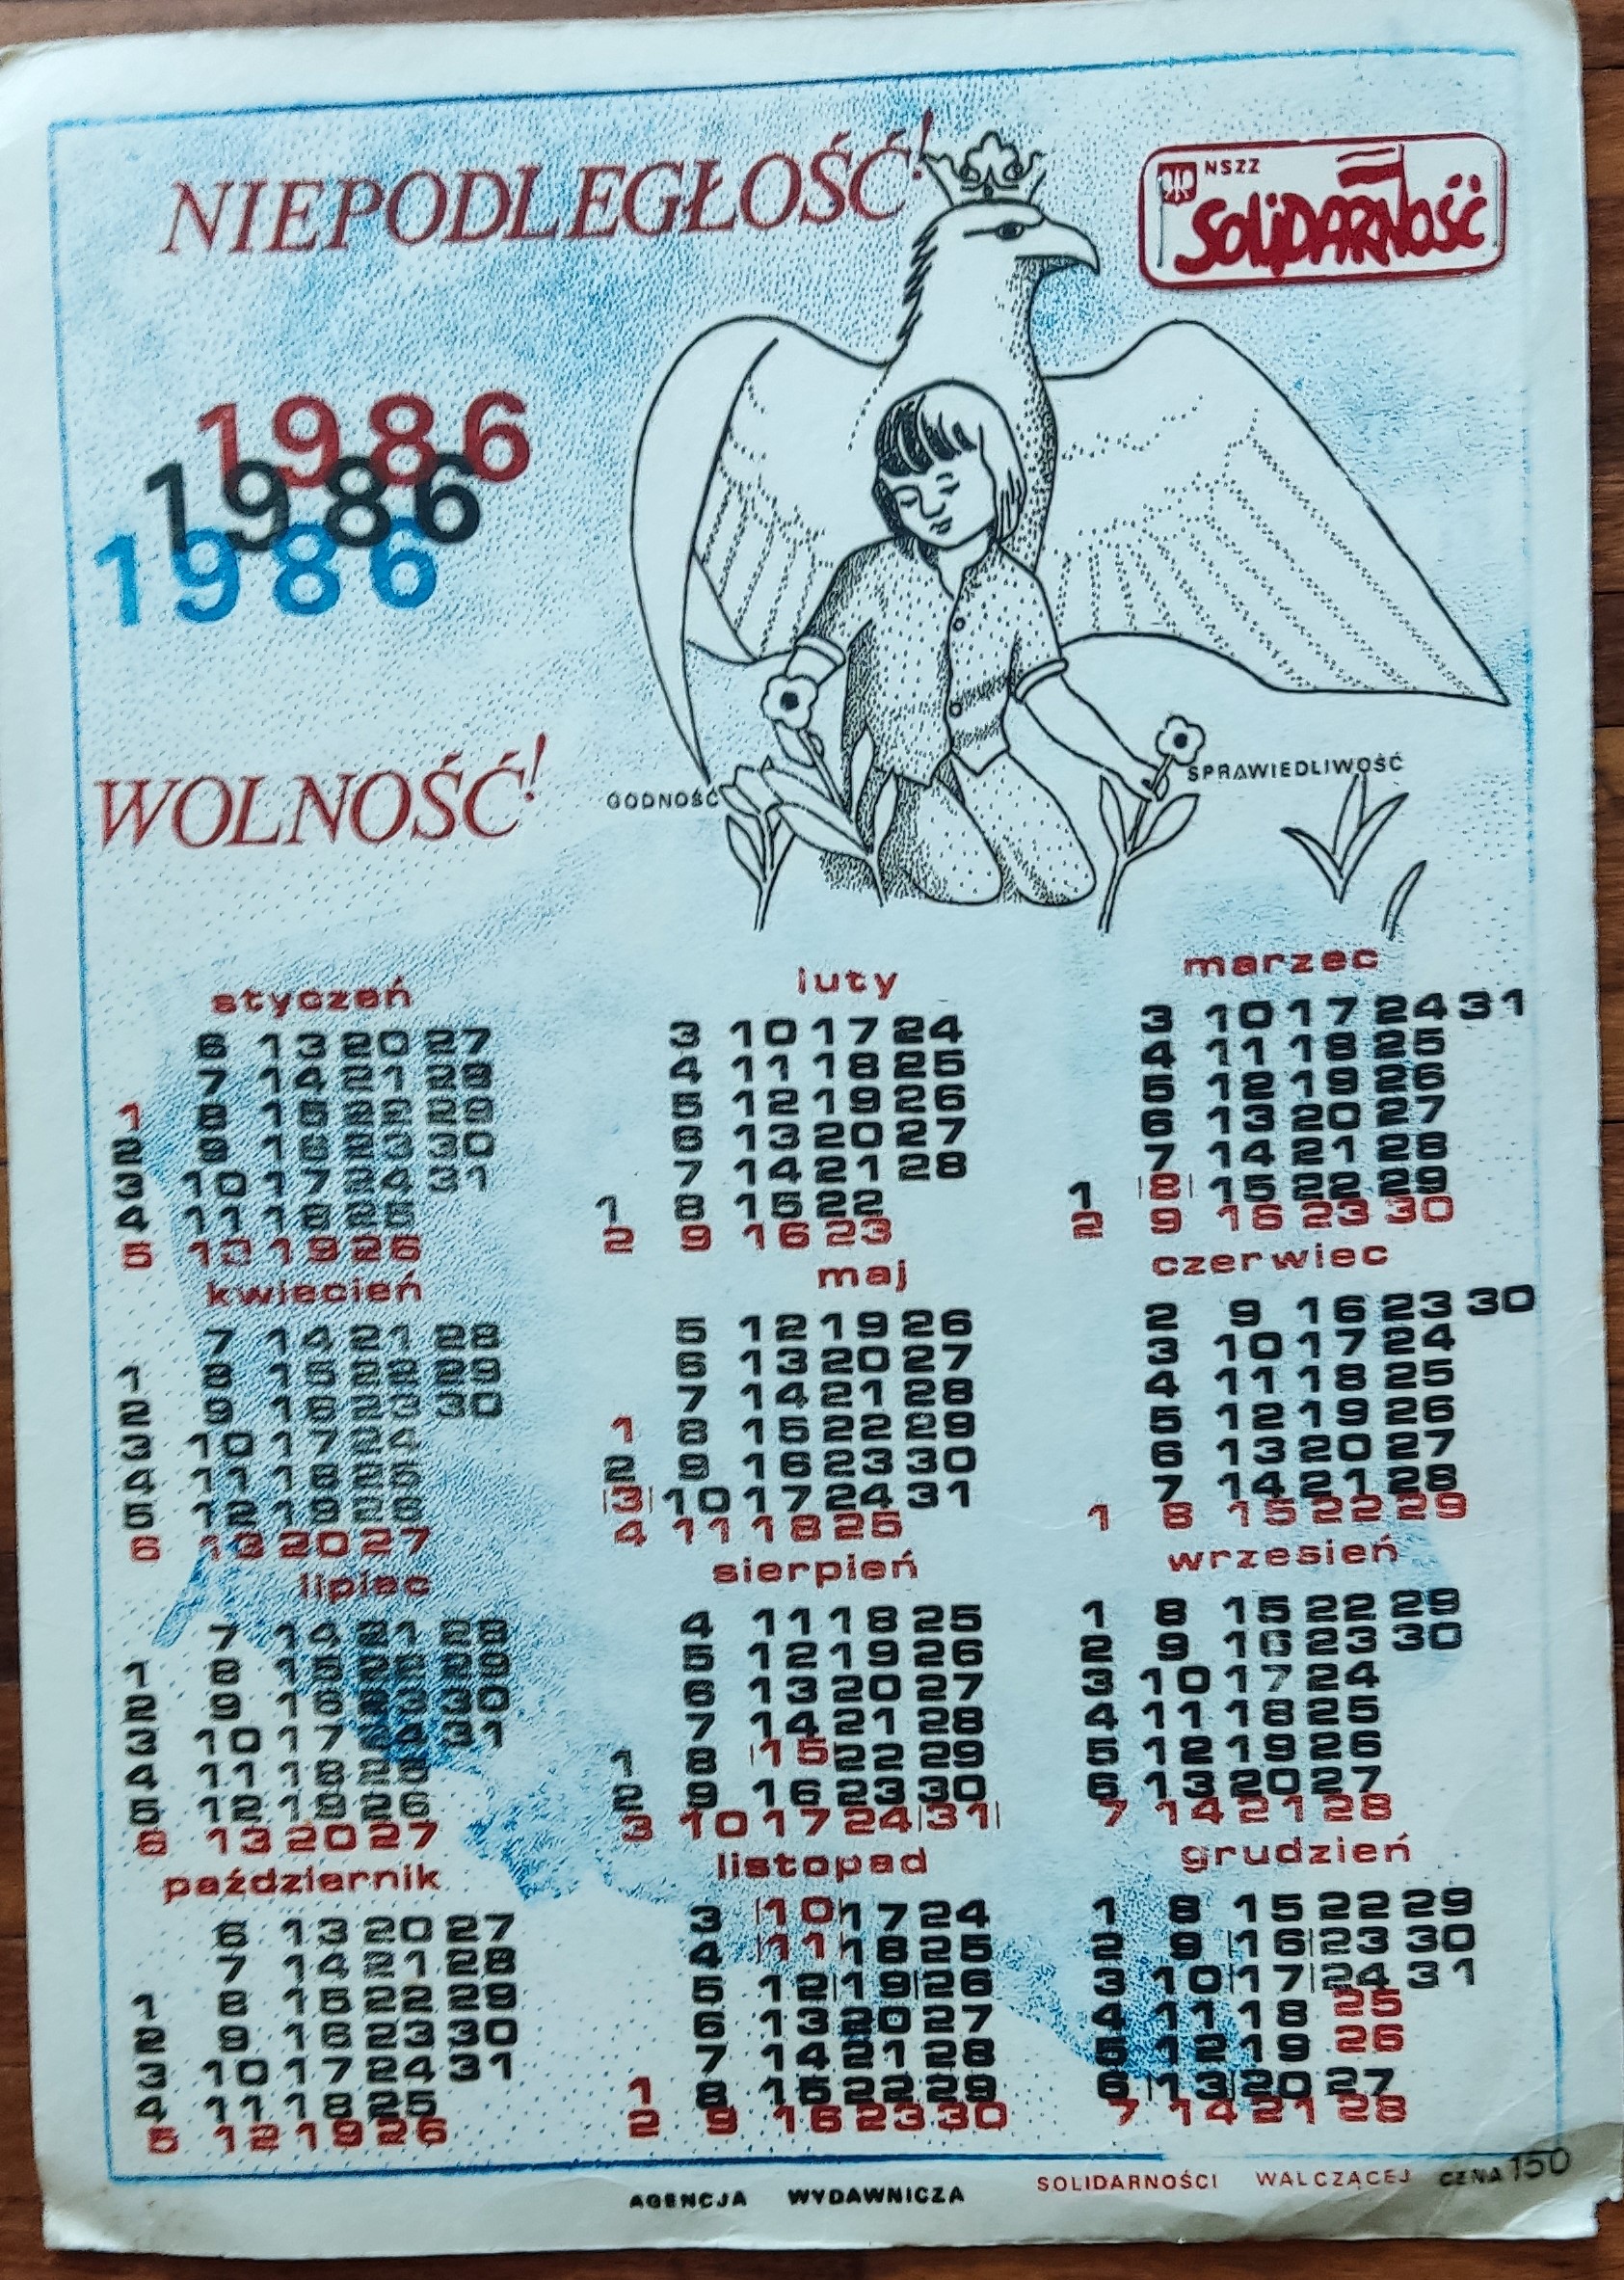 NIEPODLEGŁOŚĆ!
NSZZ
SOLIDARNOŚĆ
1986
1986
1986
WOLNOŚĆ!
GODNOŚĆ
SPRAWIEDLIWOŚĆ
styczeń
6 13 20 27
7 14 21 28
1 8 15 22 29
2 9 16 23 30
3 10 17 24 31
4 11 18 25
5 12 19 26
luty
3 10 17 24
4 11 18 25
5 12 19 26
6 13 20 27
7 14 21 28
1 8 15 22
2 9 16 23
marzec
3 10 17 24 31
4 11 18 25
5 12 19 26
6 13 20 27
7 14 21 28
1 |8| 15 22 29
2 9 16 23 30
kwiecień
7 14 21 28
1 8 15 22 29
2 9 16 23 30
3 10 17 24
4 11 18 25
5 12 19 26
6 13 20 27
maj
5 12 19 26
6 13 20 27
7 14 21 28
1 8 15 22 29
2 9 16 23 30
|3| 10 17 24 31
4 11 18 25
czerwiec
2 9 16 23 30
3 10 17 24
4 11 18 25
5 12 19 26
6 13 20 27
7 14 21 28
1 8 15 22 29
lipiec
7 14 21 28
1 8 15 22 29
2 9 16 23 30
3 10 17 24 31
4 11 18 25
5 12 19 26
6 13 20 27
sierpień
4 11 18 25
5 12 19 26
6 13 20 27
7 14 21 28
1 8 |15| 22 29
2 9 16 23 30
3 10 17 24 |31|
wrzesień
1 8 15 22 29
2 9 16 23 30
3 10 17 24
4 11 18 25
5 12 19 26
6 13 20 27
7 14 21 28
październik
6 13 20 27
7 14 21 28
1 8 15 22 29
2 9 16 23 30
3 10 17 24 31
4 11 18 25
5 12 19 26
listopad
3 |10| 17 24
4 |11| 18 25
5 12 |19| 26
6 13 20 27
7 14 21 28
1 8 15 22 29
2 9 16 23 30
grudzień
1 8 15 22 29
2 9 |16| 23 30
3 10 |17| 24 31
4 11 18 25
5 12 19 26
6 |13| 20 27
7 14 21 28
AGENCJA WYDAWNICZA SOLIDARNOŚCI WALCZĄCEJ CENA 150